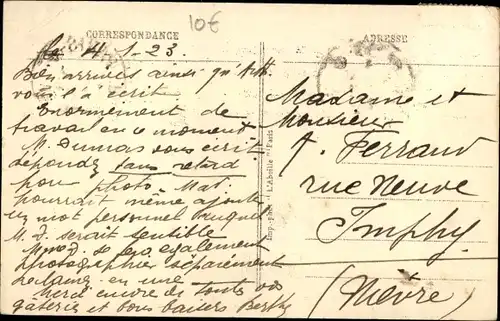 10€
CORRESPONDANCE
Le 4-1-23.
Bien arrivés ainsi qu'Ath.
vous l'a écrit
Enormément de
travail en ce moment
M. Dumas vous écrit.
répondez sans retard
pour photo. Mat.
pourrait même ajouter
un mot personnel auquel
M. D. serait sensible
Mme D. également
photographie séparément
en une
Merci encore de toutes vos
gâteries et bons baisers Berthe
Imp.-phot. "L'Abeille" Paris
ADRESSE
Madame et
Monsieur
A. Ferrand
rue Neuve
Imphy
(Nièvre)